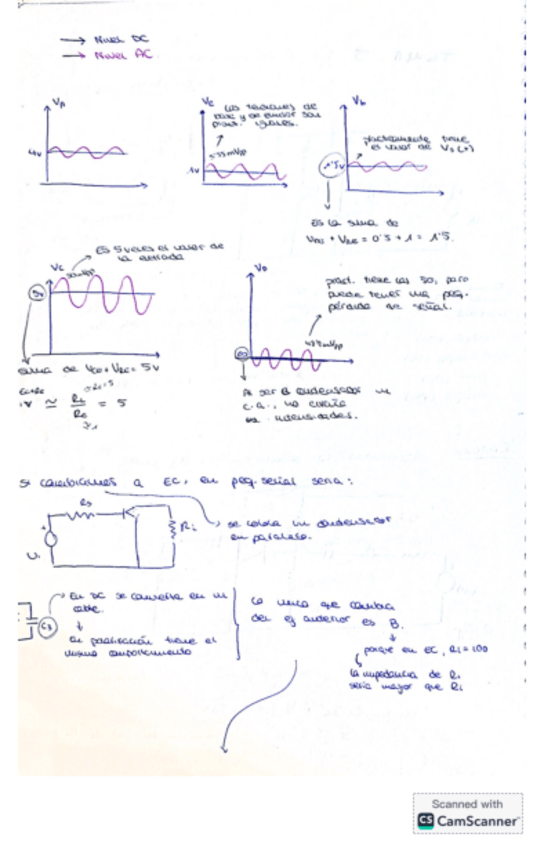 → Nivel DC
→ Nivel AC
VA
VE
Las tensiones de
base y de emisor son
pract. iguales.
1V
Vb
practicamente tiene
el valor de
1'5V
Es la suma de
= 0'5 + 1 = 1'5.
Es 5 veces el valor de
la entrada
Vc
5V
suma de = 5V
≃ = 5
Vo
pract. tiene las 50, pero
puede tener una peq.
pérdida de señal.
Al ser el condensador un
c.a., no circula
intensidades.
Si cambiamos a EC, en peq. señal sería:
Rs
RL
se coloca un condensador
en paralelo.
C3
En DC se convierte en un
cable.
en polarización tiene el
mismo comportamiento
Lo unico que cambia
del ej anterior es B.
porque en EC, = 100
la impedancia de
sería mayor que
Scanned with
CS CamScanner